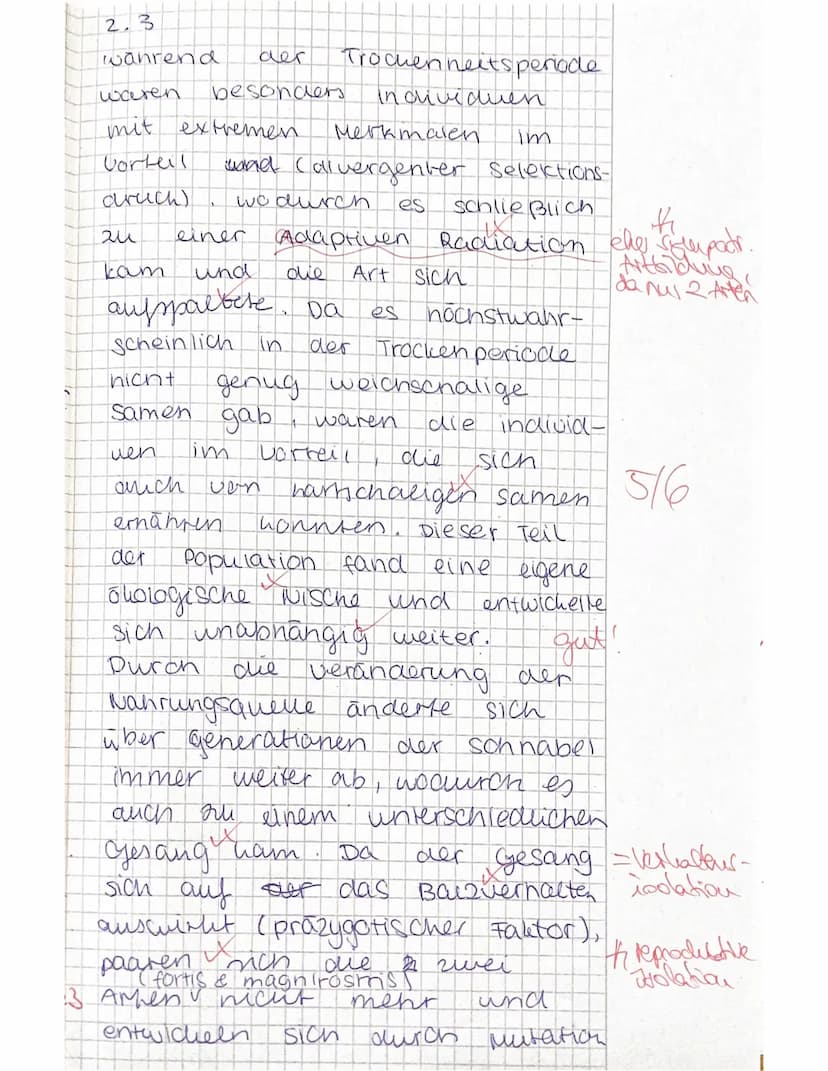 2.3
während der Trockenheitsperiode
waren besonders Individuen
mit extremen Merkmalen im
Vorteil und (divergenter Selektions-
druck), wodurch es schließlich
zu einer Adaptiven Radiation
eher sympatr.
Artbildung,
da nur 2 Arten
kam und die Art sich
aufspaltete. Da es höchstwahr-
scheinlich in der Trockenperiode
nicht genug weichschalige
Samen gab, waren die Individ-
uen im Vorteil, die sich
auch von hartschaeligen Samen
5/6
ernähren konnten. Dieser Teil
der Population fand eine eigene
ökologische Nische und entwickelte
sich unabhängig weiter.
gut!
Durch die Veränderung der
Nahrungsquelle änderte sich
über Generationen der Schnabel
immer weiter ab, wodurch es
auch zu einem unterschiedlichen
Gesang kam. Da der Gesang
= Verhaltens-
isolation
sich auf der das Balzverhalten
auswirkt (präzygotischer Faktor),
paaren sich die 2 zwei
reproduktive
isolation
(fortis & magnirosmis)
Arten nicht mehr und
entwickeln sich durch Mutation